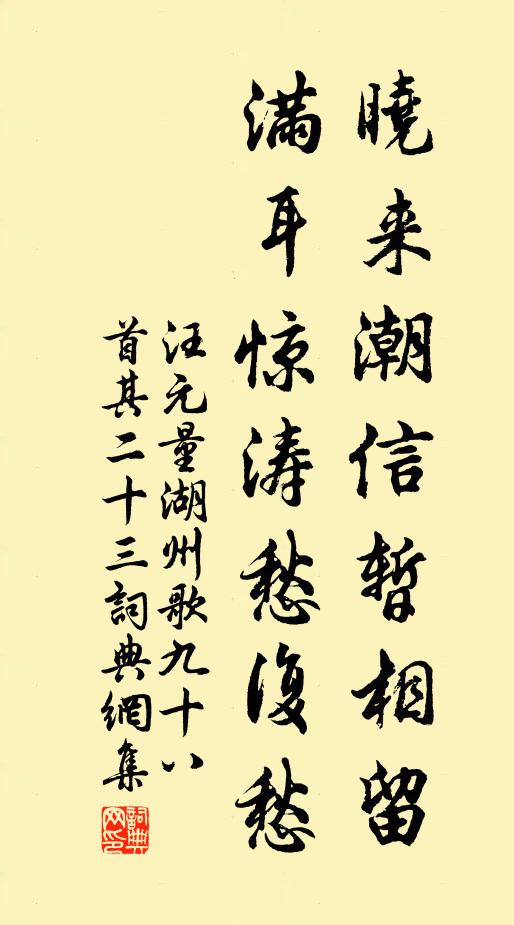 曉来潮信暫相留
满耳惊涛愁復愁
汪元量湖州歌九十八
首其二十三詞典網集
詞典
网印